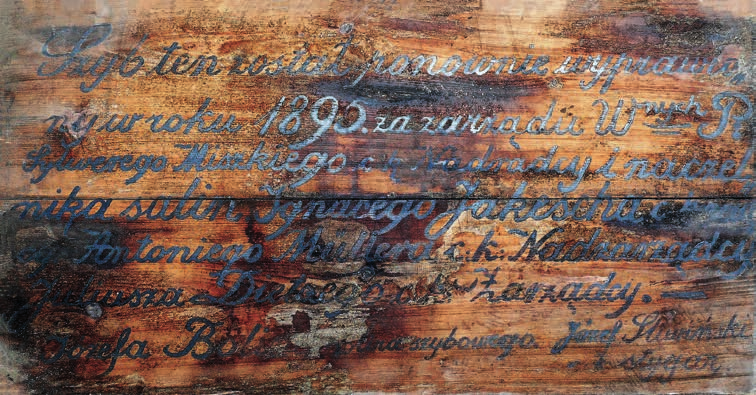 Szyb ten został ponownie wyprawio
ny w roku 1890. za zarządu Wnych P
Sylwerego Miszkiego c. k. Nadradcy i naczel
nika salin Ignacego Jakescha c
Antoniego Mullera c. k. Nadzarządcy
Juliusza Drebsego c. k. Zarządcy. —
Józefa szybowego Józef
sztygar.